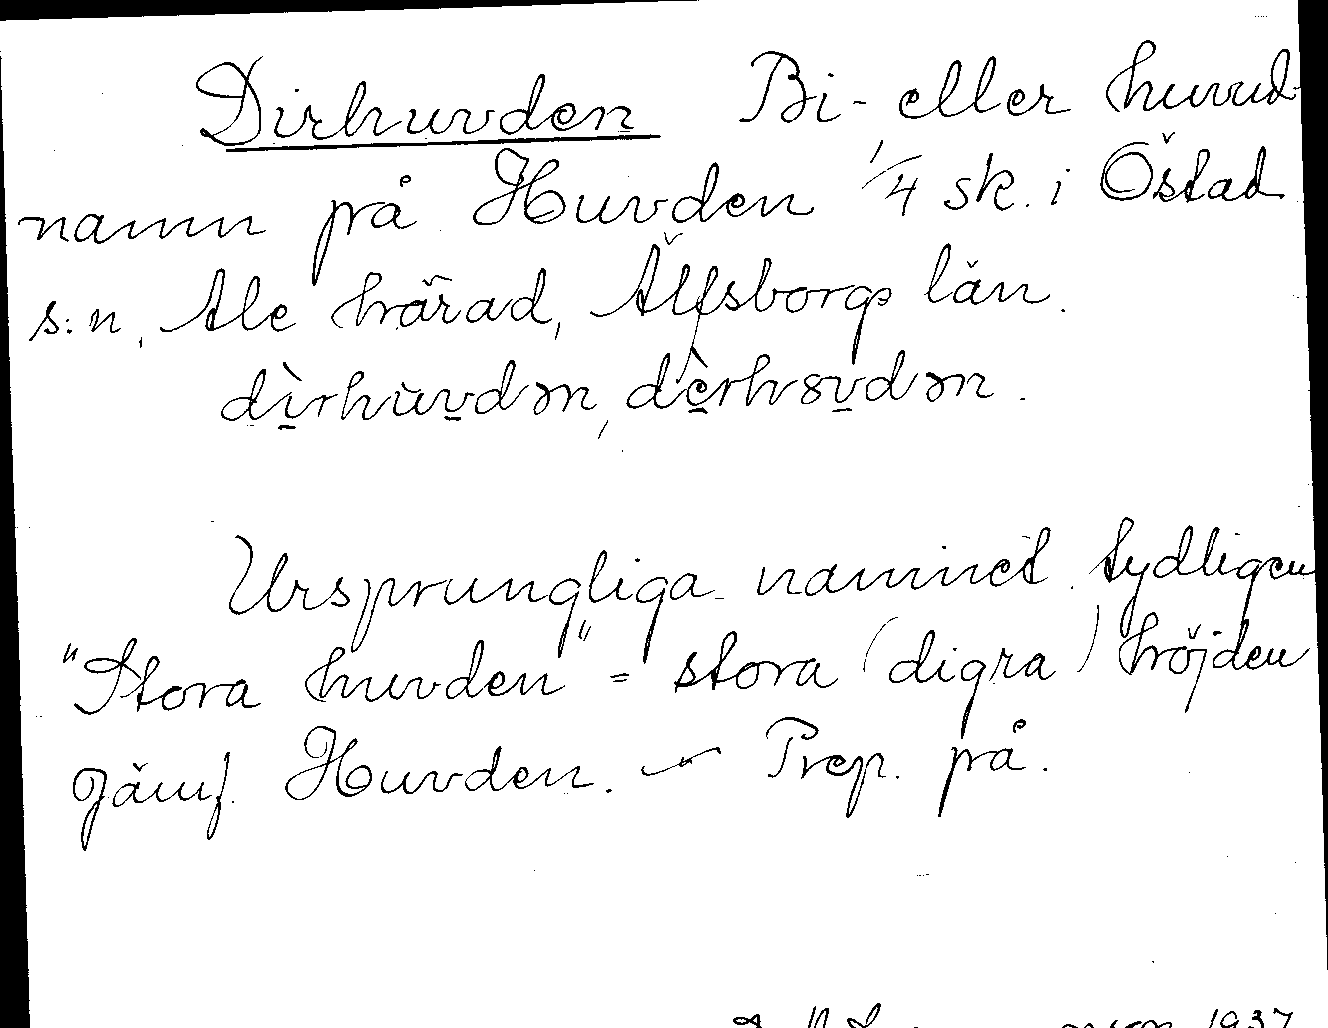 Dirhuvden Bi- eller huvud-
namn på Huvden 1/4 sk. i Östad
s:n, Ale härad, Älfsborgs län.
dìrhùvdən, dèrhɤvdən.
Ursprungliga namnet tydligen
"Stora huvden" = stora (digra) höjden
Jämf. Huvden. — Prep. på.
1937